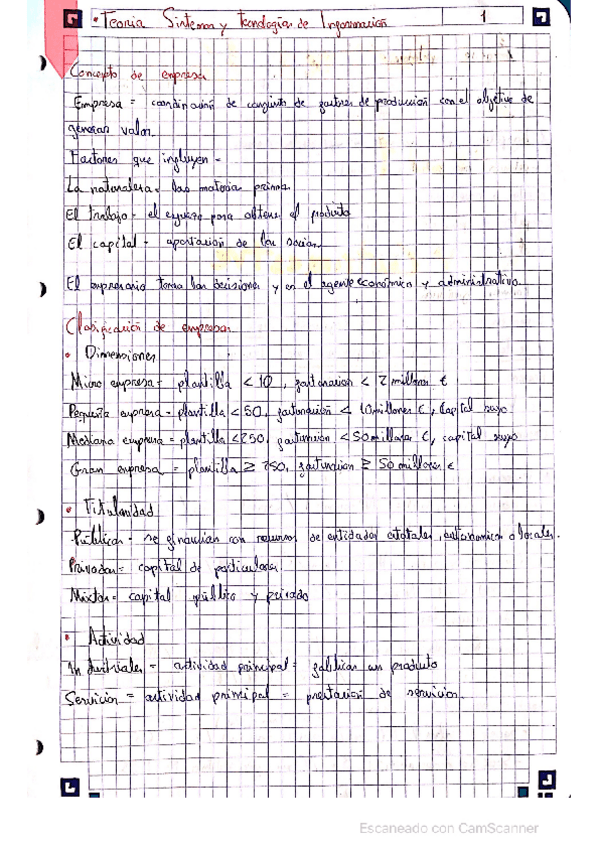 • Teoria Sistemas y tecnologia de Informacion 1
Concepto de empresa
Empresa = coordinación de conjunto de factores de producción con el objetivo de
generar valor.
Factores que incluyen -
La naturaleza - las materia prima
El trabajo - el esfuerzo para obtener el producto
El capital - aportación de los socios
El empresario toma las decisiones y es el agente económico y administrativo.
Clasificación de empresas
• Dimensiones
Micro empresa = plantilla < 10, facturacion < 2 millones €
Pequeña empresa = plantilla < 50, facturación < 10 millones €, Capital suyo
Mediana empresa = plantilla < 250, facturacion < 50 millones €, capital suyo
Gran empresa = plantilla ≥ 250, facturacion ≥ 50 millones €
• Titularidad
Públicas - se financian con recursos de entidades estatales, autonomicas o locales.
Privadas = capital de particulares.
Mixtas = capital público y privado
• Actividad
Industriales = actividad principal = fabricar un producto
Servicios = actividad principal = prestación de servicios.
Escaneado con CamScanner